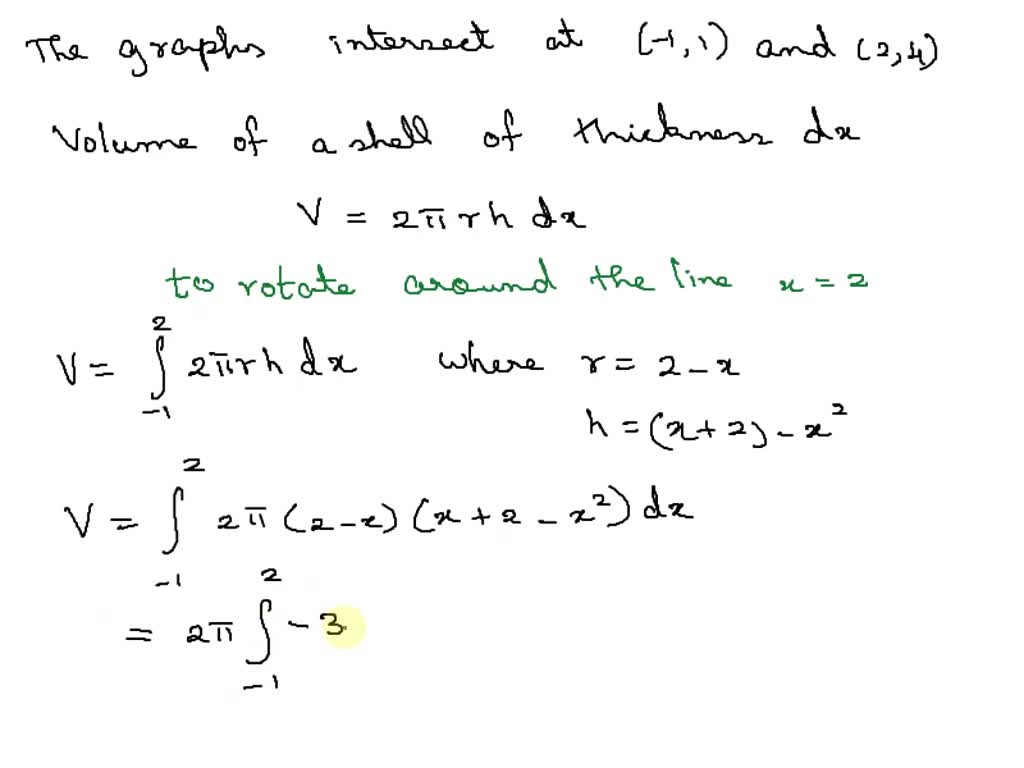 The graphs intersect at (-1, 1) and (2, 4)
Volume of a shell of thickness dx
V = 2π r h dx
to rotate around the line x = 2
V = ∫_{-1}^{2} 2π r h dx where r = 2 - x
h = (x + 2) - x²
V = ∫_{-1}^{2} 2π (2 - x) (x + 2 - x²) dx
= 2π ∫_{-1}^{2} - 3